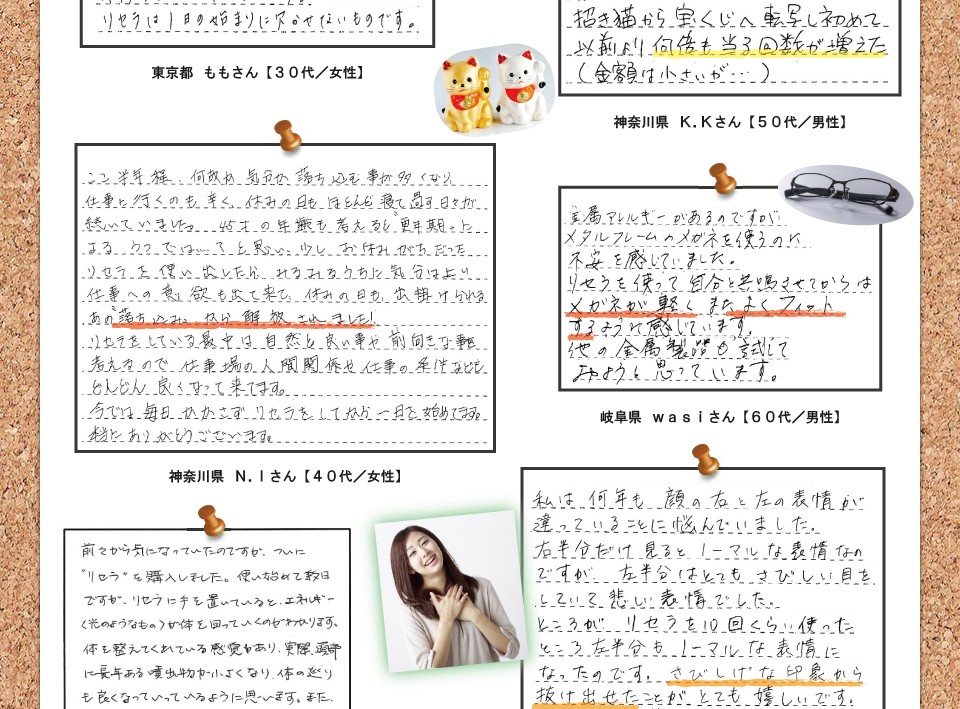 リセラは1日の始まりに欠かせないものです。
東京都 ももさん【３０代／女性】
招き猫から宝くじへ転写し初めて
以前より何倍も当る回数が増えた
(金額は小さいが…)
神奈川県 Ｋ.Ｋさん【５０代／男性】
ここ半年程、何故か気分が落ち込む事が多くなり、
仕事に行くのも辛く、休みの日も、ほとんど寝て過す日々が
続いていました。45才の年齢も考えると"更年期"に
よる、うつでは…?と思い、少しお休みがちだった
リセラを使い出したら、みるみるうちに気分はよく
仕事への意欲も出て来て、休みの日も、出掛けられる
あの"落ち込み"から解放されました!
リセラをしている最中は自然と良い事や前向きな事を
考えるので、仕事場の人間関係や仕事の条件なども
どんどん良くなって来てます。
今では毎日かかさずリセラをしてから一日を始めてます。
本当にありがとうございます。
神奈川県 Ｎ.Ｉさん【４０代／女性】
金属アレルギーがあるのですが
メタルフレームのメガネを使うのに
不安を感じていました。
リセラを使って自分と共鳴させてからは
メガネが軽く またよくフィット
するように感じています。
他の金属製品も試して
みようと思っています。
岐阜県 ｗａｓｉさん【６０代／男性】
前々から気になっていたのですが、ついに
"リセラ"を購入しました。使い始めて数日
ですが、リセラに手を置いていると、エネルギー
(光のようなもの)が体を回っていくのがわかります。
体を整えてくれている感覚があり、実際、頭部
に長年ある噴出物が小さくなり、体の巡り
も良くなっていっているように思います。また、
私は何年も顔の右と左の表情が
違っていることに悩んでいました。
右半分だけ見るとノーマルな表情なの
ですが、左半分はとてもさびしい目を
していて悲しい表情でした。
ところが リセラを10回くらい使った
ところ左半分もノーマルな表情に
なったのです。さびしげな印象から
抜け出せたことが とても嬉しいです。